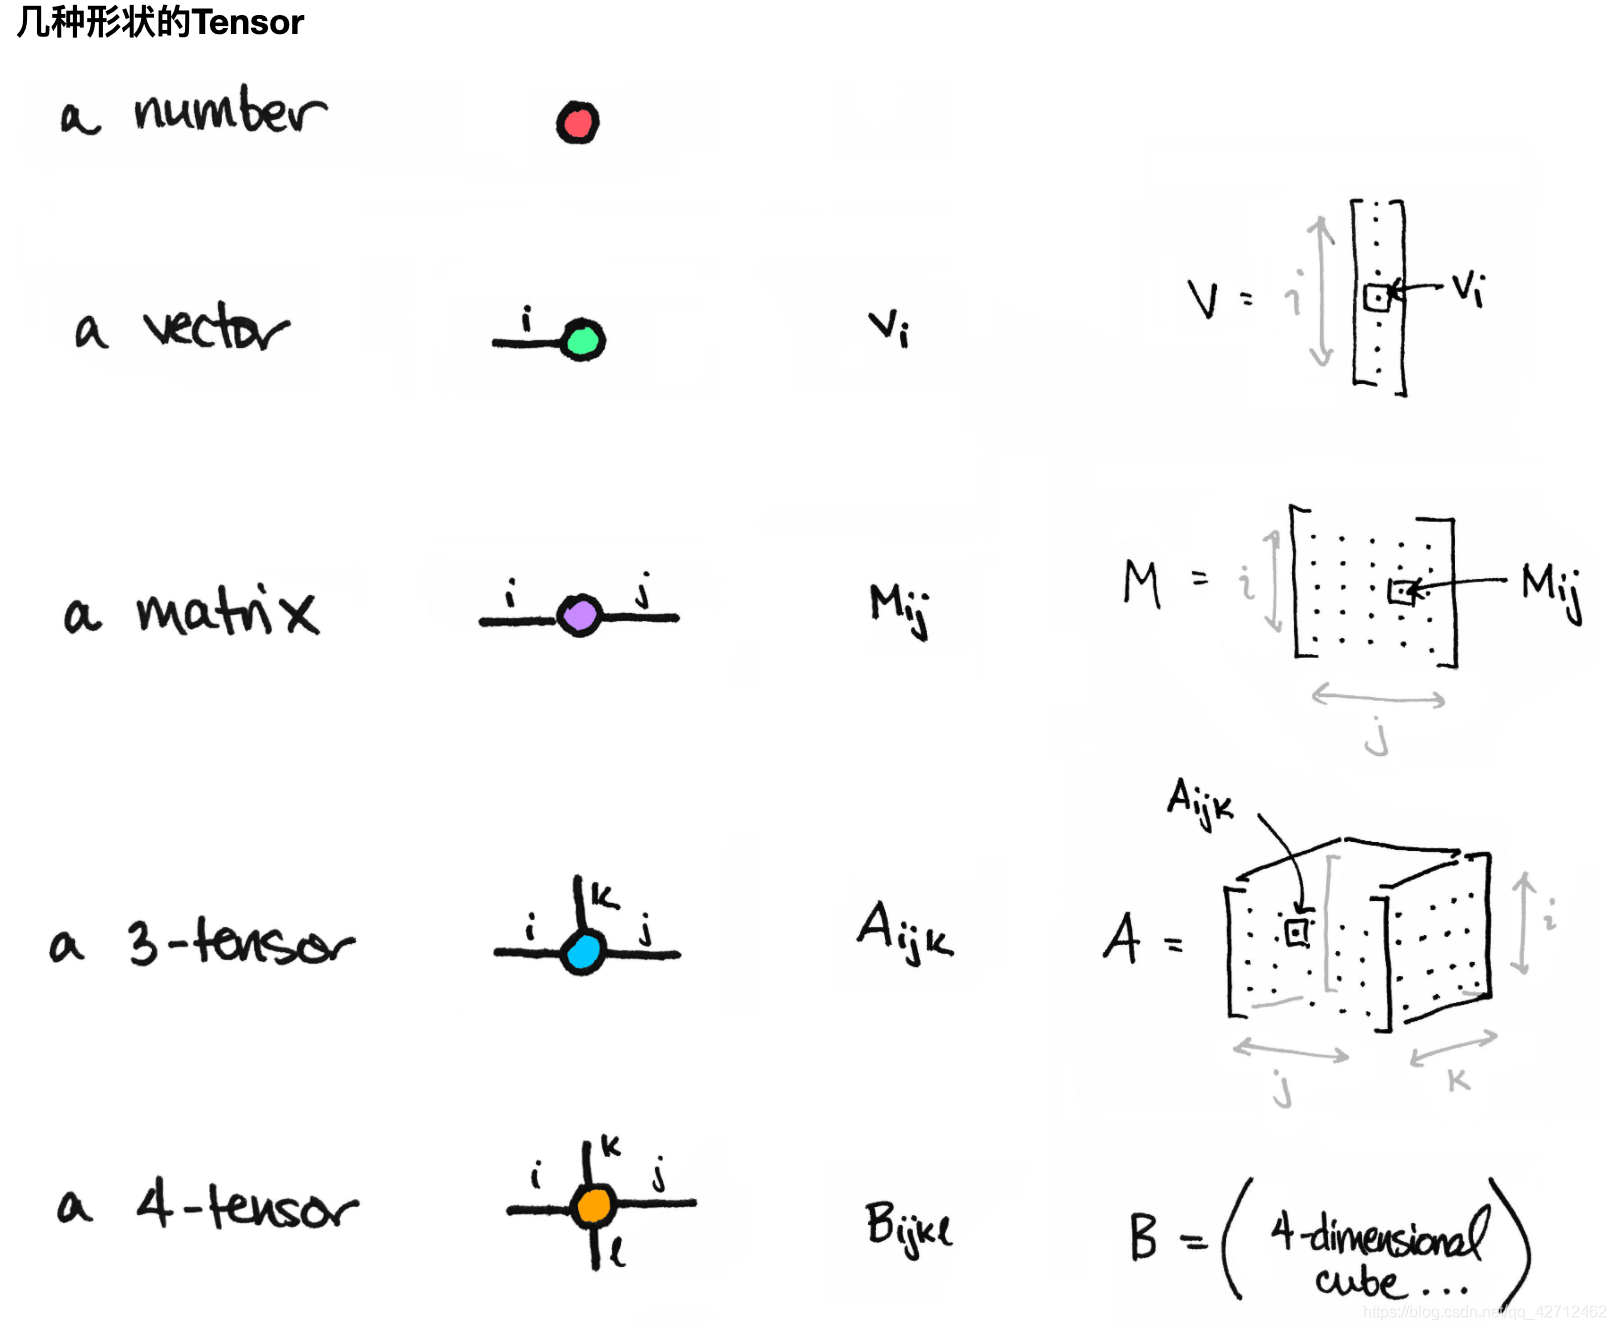 几种形状的Tensor
a number
a vector i vi V = i vi
a matrix i j Mij M = i Mij
j
Aijk
a 3-tensor i k j Aijk A = i
j k
a 4-tensor i k j l Bijkl B = ( 4-dimensional
cube ... )
https://blog.csdn.net/qq_42712462